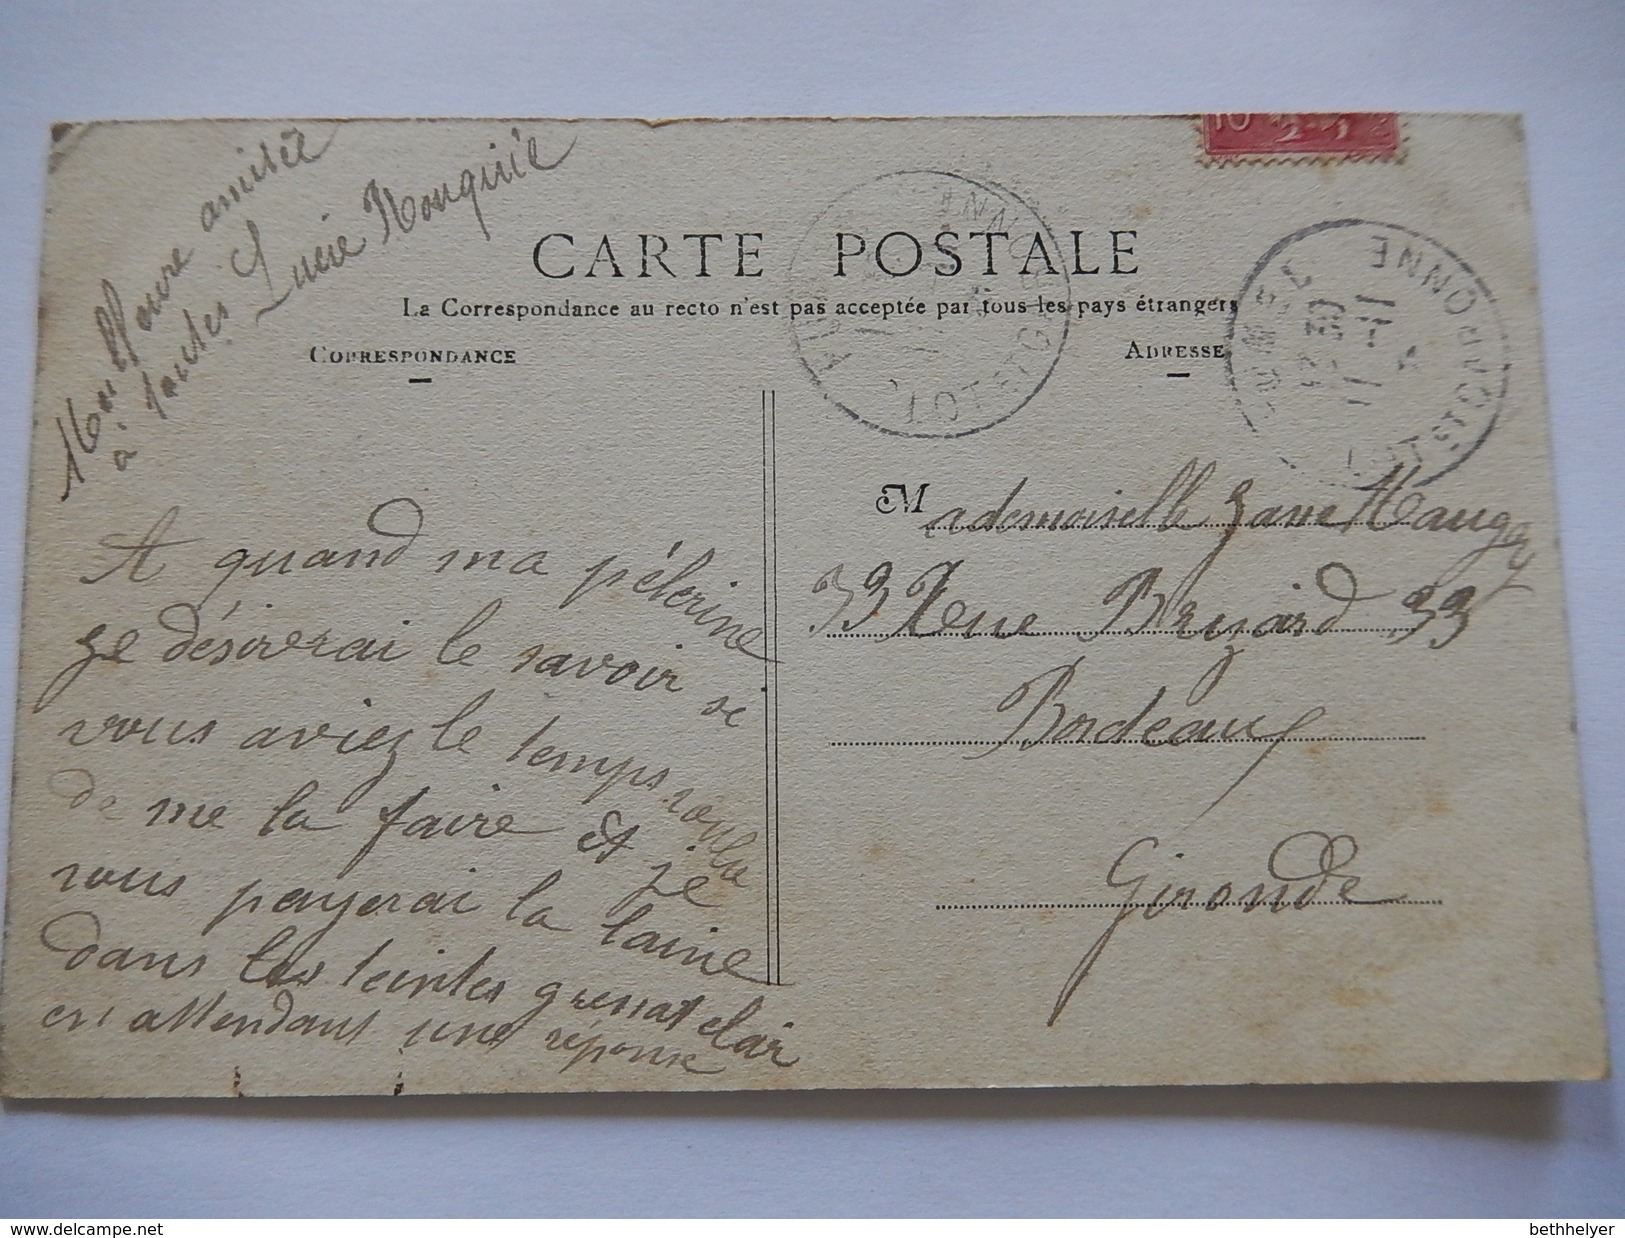 amitié
à toutes Lucie
CARTE POSTALE
La Correspondance au recto n'est pas acceptée par tous les pays étrangers
CORRESPONDANCE
ADRESSE
10
LOT ET G
LOT ET G
A quand ma pélerine
je désirerai le savoir si
vous aviez le temps
de me la faire et je
vous payerai la laine
dans les teintes grenat clair
en attendant une réponse
Mademoiselle
33 Rue Bryard 33
Bordeaux
Gironde
delcampe.net
bethhelyer